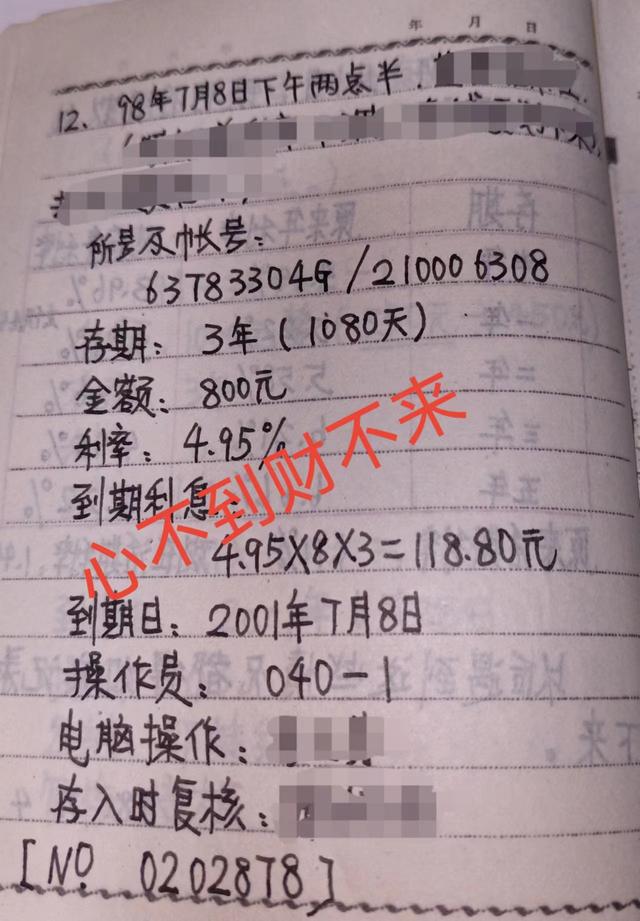 年 月 日
12、98年7月8日下午两点半,
所号及帐号:
63783304G/210006308
存期:3年(1080天)
金额:800元
利率:4.95%
到期利息:
4.95X8X3=118.80元
到期日:2001年7月8日
操作员:040-1
电脑操作:
存入时复核:
[NO 0202878]
心不到财不来